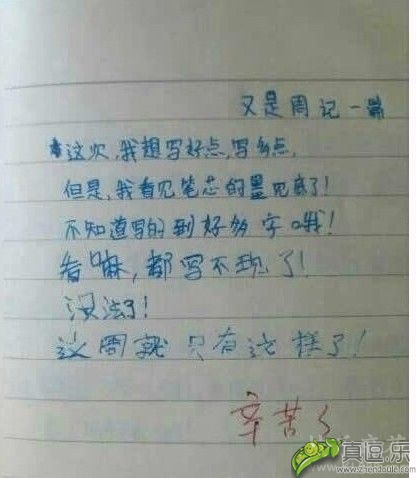 又是周记一篇
这次,我想写好点,写多点,
但是,我看见笔芯的墨见底了!
不知道写的到好多字哦!
看嘛,都写不现了!
没法了!
这周就只有这样了!
辛苦了
真逗乐
www.zhendoule.com